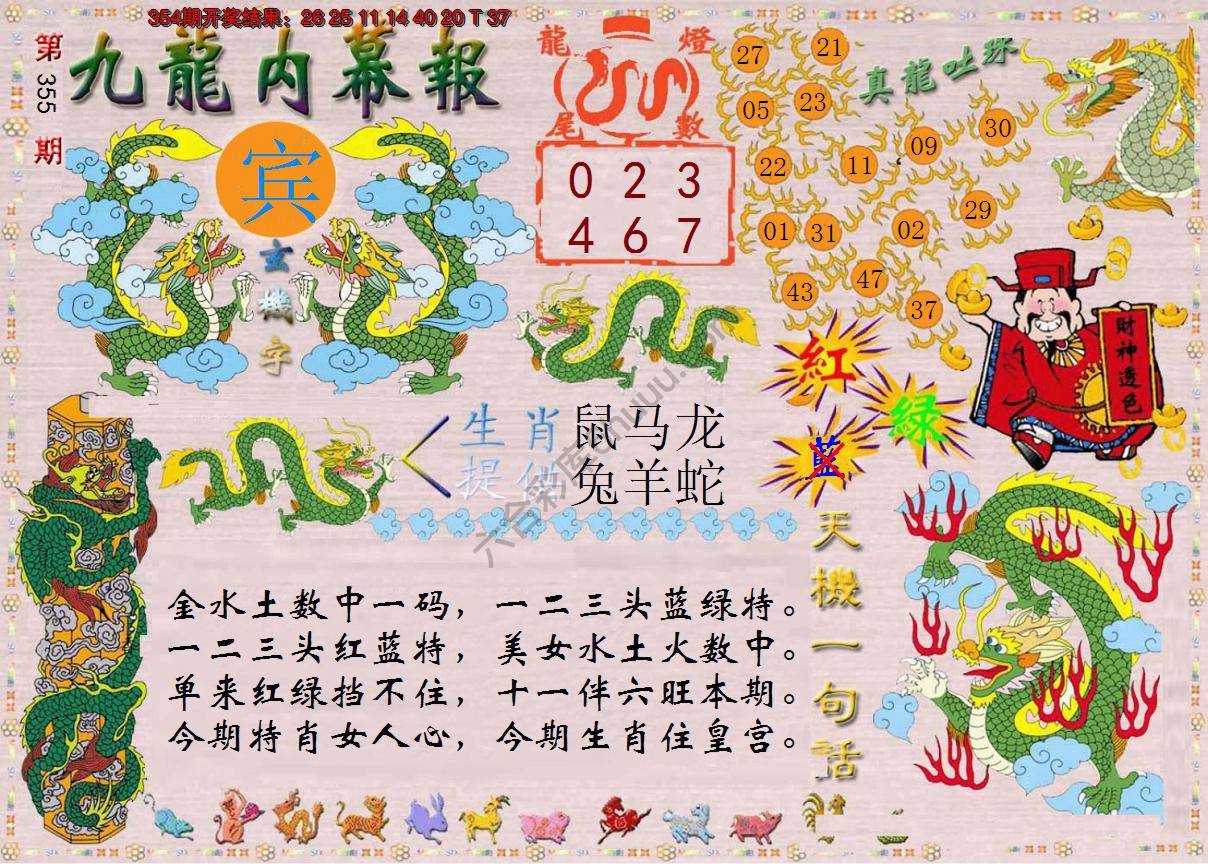 354期开奖结果：26 25 11 14 40 20 T 37
第355期
九龍内幕報
宾
玄機字
龍燈
尾數
0 2 3
4 6 7
真龍吐珠
27 21
05 23
22 11 09 30
01 31 02 29
43 47 37
財神透色
紅
綠
藍
生肖
提供
鼠马龙
兔羊蛇
六合彩库
天機一句話
金水土数中一码，一二三头蓝绿特。
一二三头红蓝特，美女水土火数中。
单来红绿挡不住，十一伴六旺本期。
今期特肖女人心，今期生肖住皇宫。